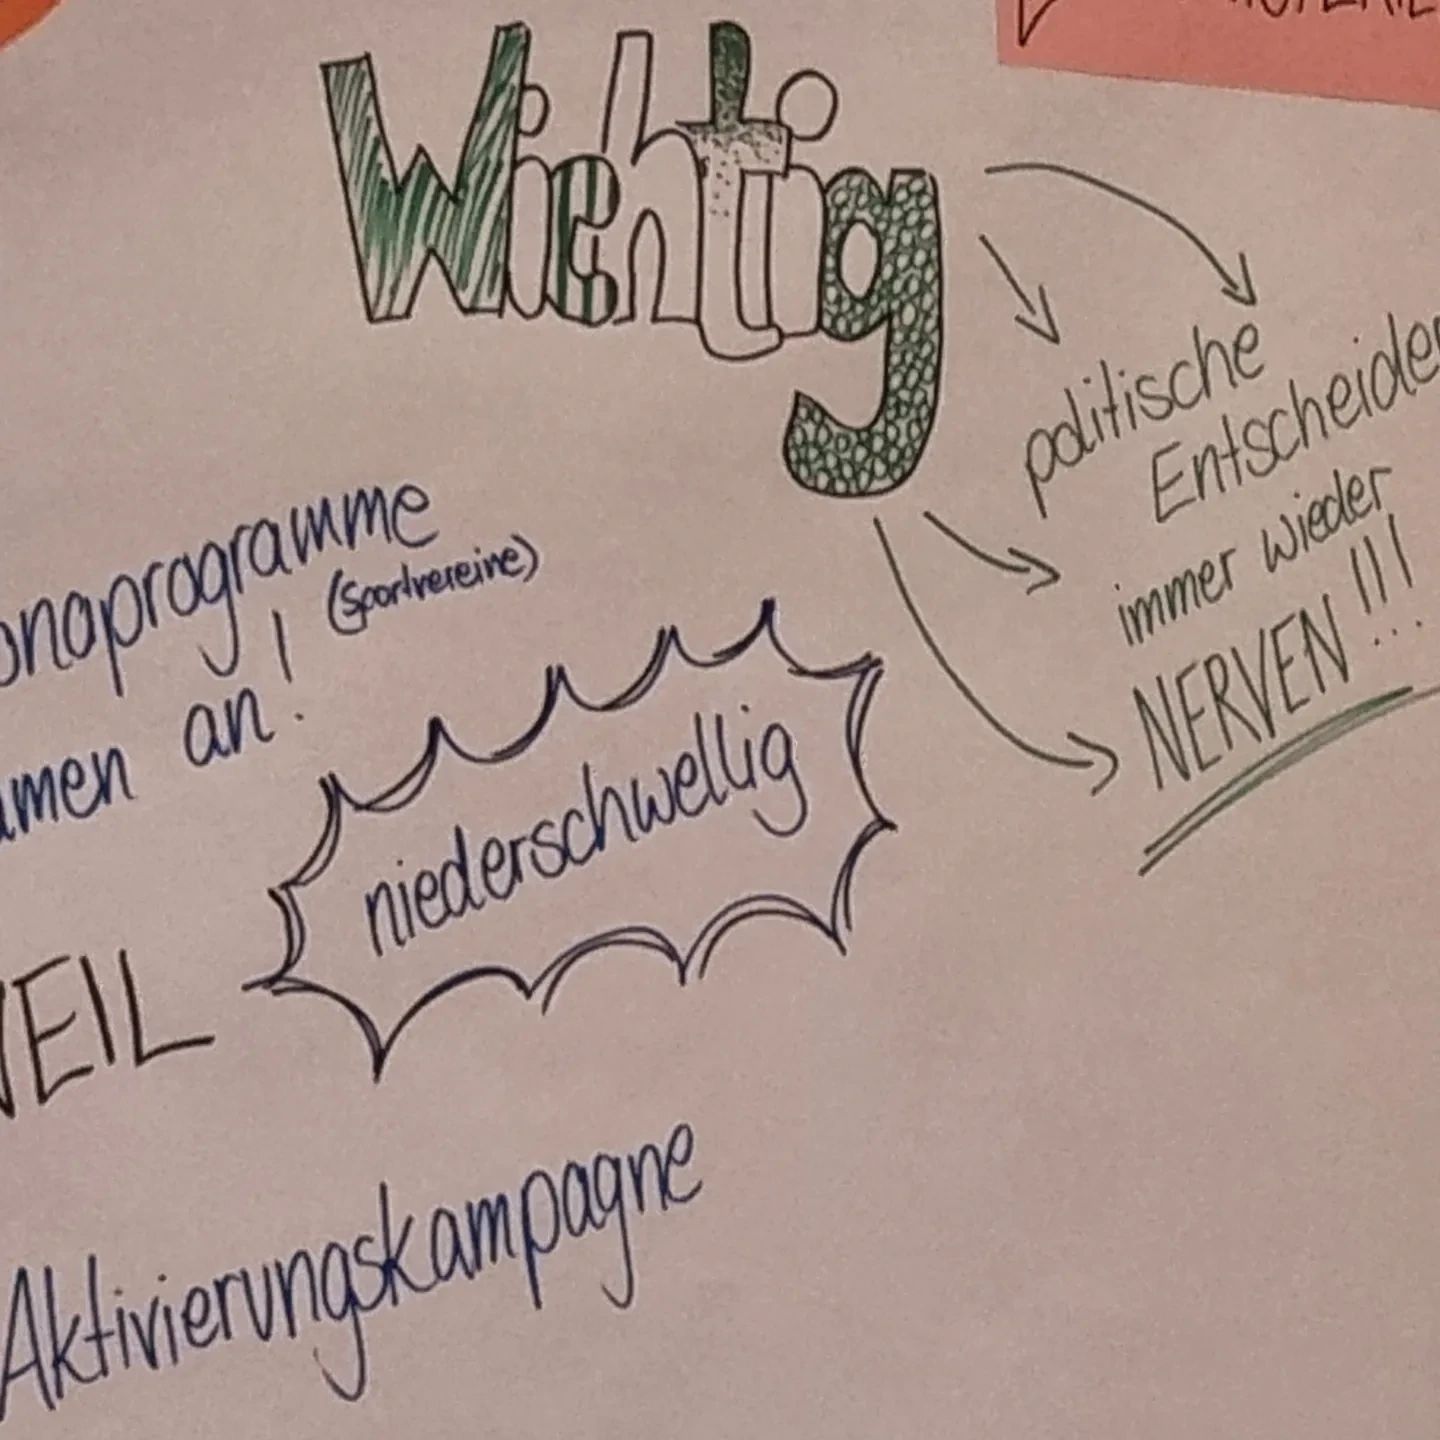 Wichtig
politische
Entscheider
immer wieder
NERVEN!!!
(Sportvereine)
an!
niederschwellig
Aktivierungskampagne